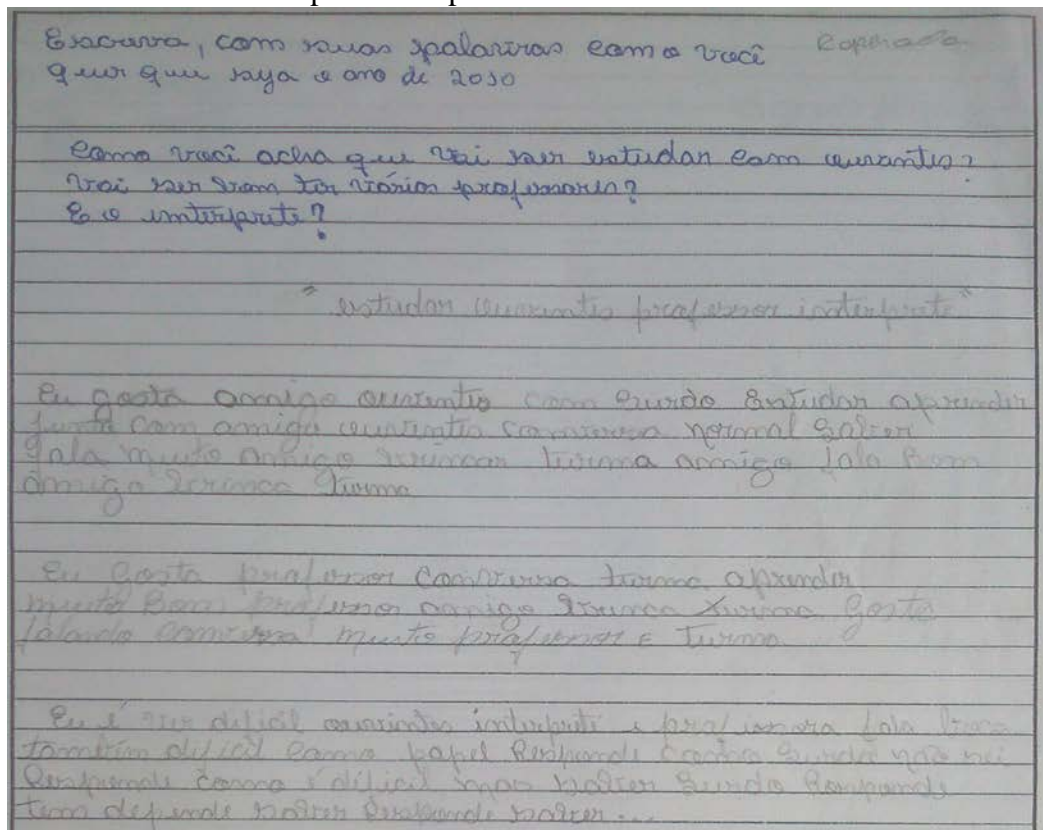 Escreva, com suas palavras como você
quer que seja o ano de 2010
Como você acha que vai ser estudar com ouvintes?
Vai ser bom ter vários professores?
E o interprete?
"estudar ouvintes professor interprete"
Eu gosta amigo ouvintes com surdo Estudar aprender
junto com amigo ouvintes conversa normal saber
fala muito amigo brincar turma amigo fala Bom
amigo brinca turma
Eu gosta professor conversa turma aprender
muito Bom professor amigo brinca turma gosta
falando conversa muito professor e turma
Eu é difícil ouvintes interprete e professora fala
também difícil como papel Responde surdo não sei
Responde como é difícil mas saber surdo Responde
tem depende saber Responde saber...